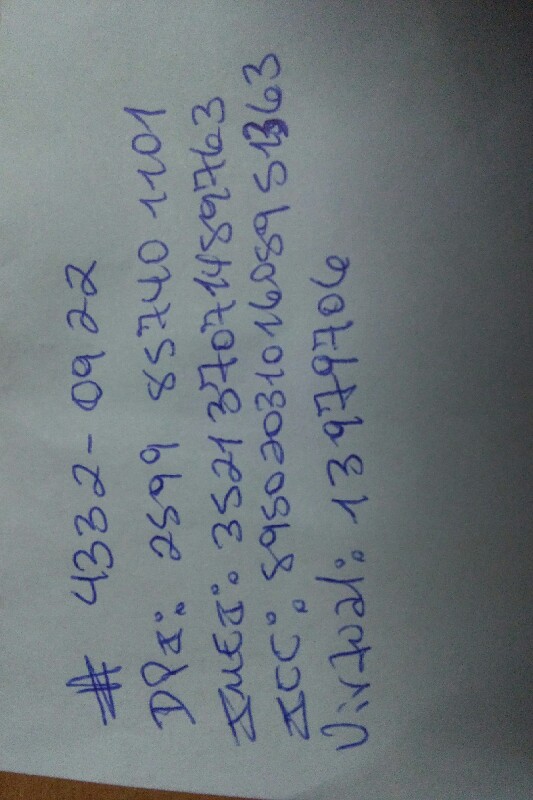 # 4332-0922
DPI: 2599 85740 1101
IMEI: 352137071489763
ICC: 8950203101608951363
Virtual: 13979706